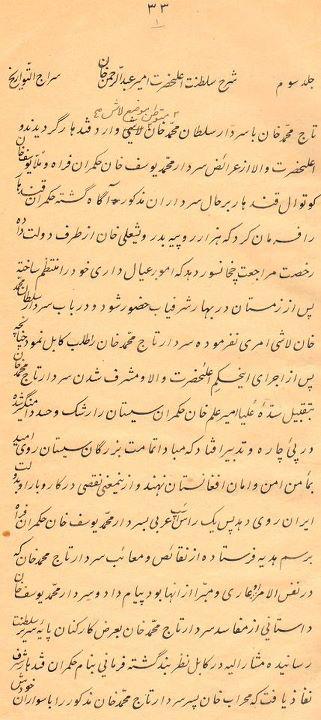 ٣٣
١
جلد سوم شرح سلطنت اعلیحضرت امیر عبدالرحمن خان سراج التواریخ
تاج محمد خان با سردار سلطان محمد خان لاشی وارد قندهار گردیدند و
اعلیحضرت والا از عرائض سردار محمد یوسف خان حکمران فراه و ملا یوسف خان
کوتوال قندهار بر حال سرداران مذکور آگاه گشته حکمران قندهار
را فرمان کرد که هزار روپیه بدرویشعلی خان از طرف دولت داده
رخصت مراجعت چخانسور دهد که امور عیالداری خود را منتظم ساخته
پس از زمستان در بهار شرفیاب حضور شود و در باب سردار سلطان محمد
خان لاشی امری نفرموده سردار تاج محمد خان را طلب کابل نمود چنانچه
پس از اجرای این حکم اعلیحضرت والا و مشرف شدن سردار تاج محمد خان
بتقبیل سدّهٔ علیا امیر علم خان حکمران سیستان را رشک و حسد دامنگیر شده
در پی چاره و تدبیر افتاد که مبادا تمامت بزرگان سیستان روی امید
بمأمن امن و امان افغانستان نهند و از اینمعنی نقصی در کاروبار دولت
ایران روی دهد پس یک راس اسپ عربی بسردار محمد یوسف خان حکمران فراه
برسم هدیه فرستاده از نقائص و معائب سردار تاج محمد خان که
در نفس الامر عاری و مبرّا از آنها بود پیام داد و سردار محمد یوسف خان
داستانی از مفاسد سردار تاج محمد خان بعرض کارکنان پایه سریر سلطنت
رسانیده مشار الیه در کابل نظربند گشته فرمانی بنام حکمران قندهار شرف
نفاذ یافت که محراب خان پسر سردار تاج محمد خان مذکور را با سواران خودش